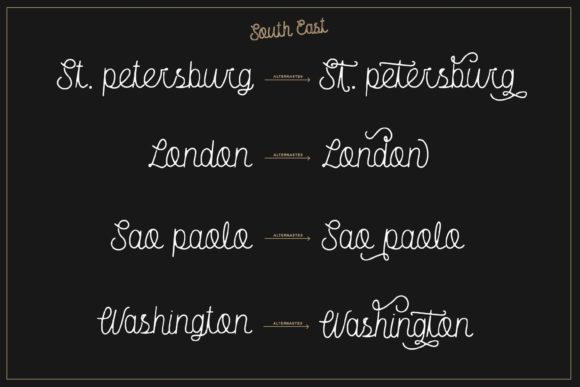 South East
St. petersburg ALTERNATES St. petersburg
London ALTERNATES London
Sao paolo ALTERNATES Sao paolo
Washington ALTERNATES Washington